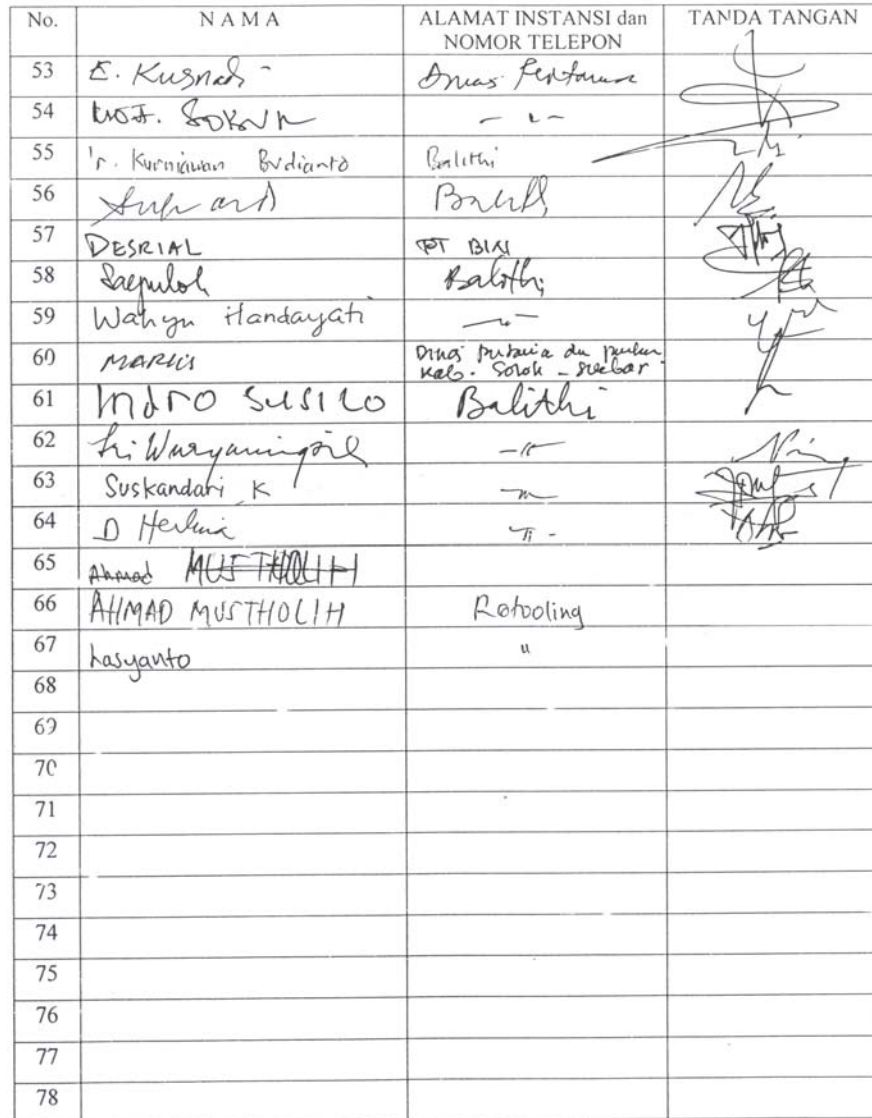 No. N A M A ALAMAT INSTANSI dan NOMOR TELEPON TANDA TANGAN
53 E. Kusnadi
54
55 Ir. Kurniawan Budianto Balithi
56 Balithi
57 DESRIAL PT
58 Saepuloh Balithi
59 Wahyu Handayati
60 MARKIS Dinas
Kab. Solok - Sumbar
61 Indro SUSILO Balithi
62 Sri Wuryaningsih
63 Suskandari K
64 D Herlina
65 Ahmad MUSTHOLIH
66 AHMAD MUSTHOLIH Rotooling
67 hasyanto "
68
69
70
71
72
73
74
75
76
77
78